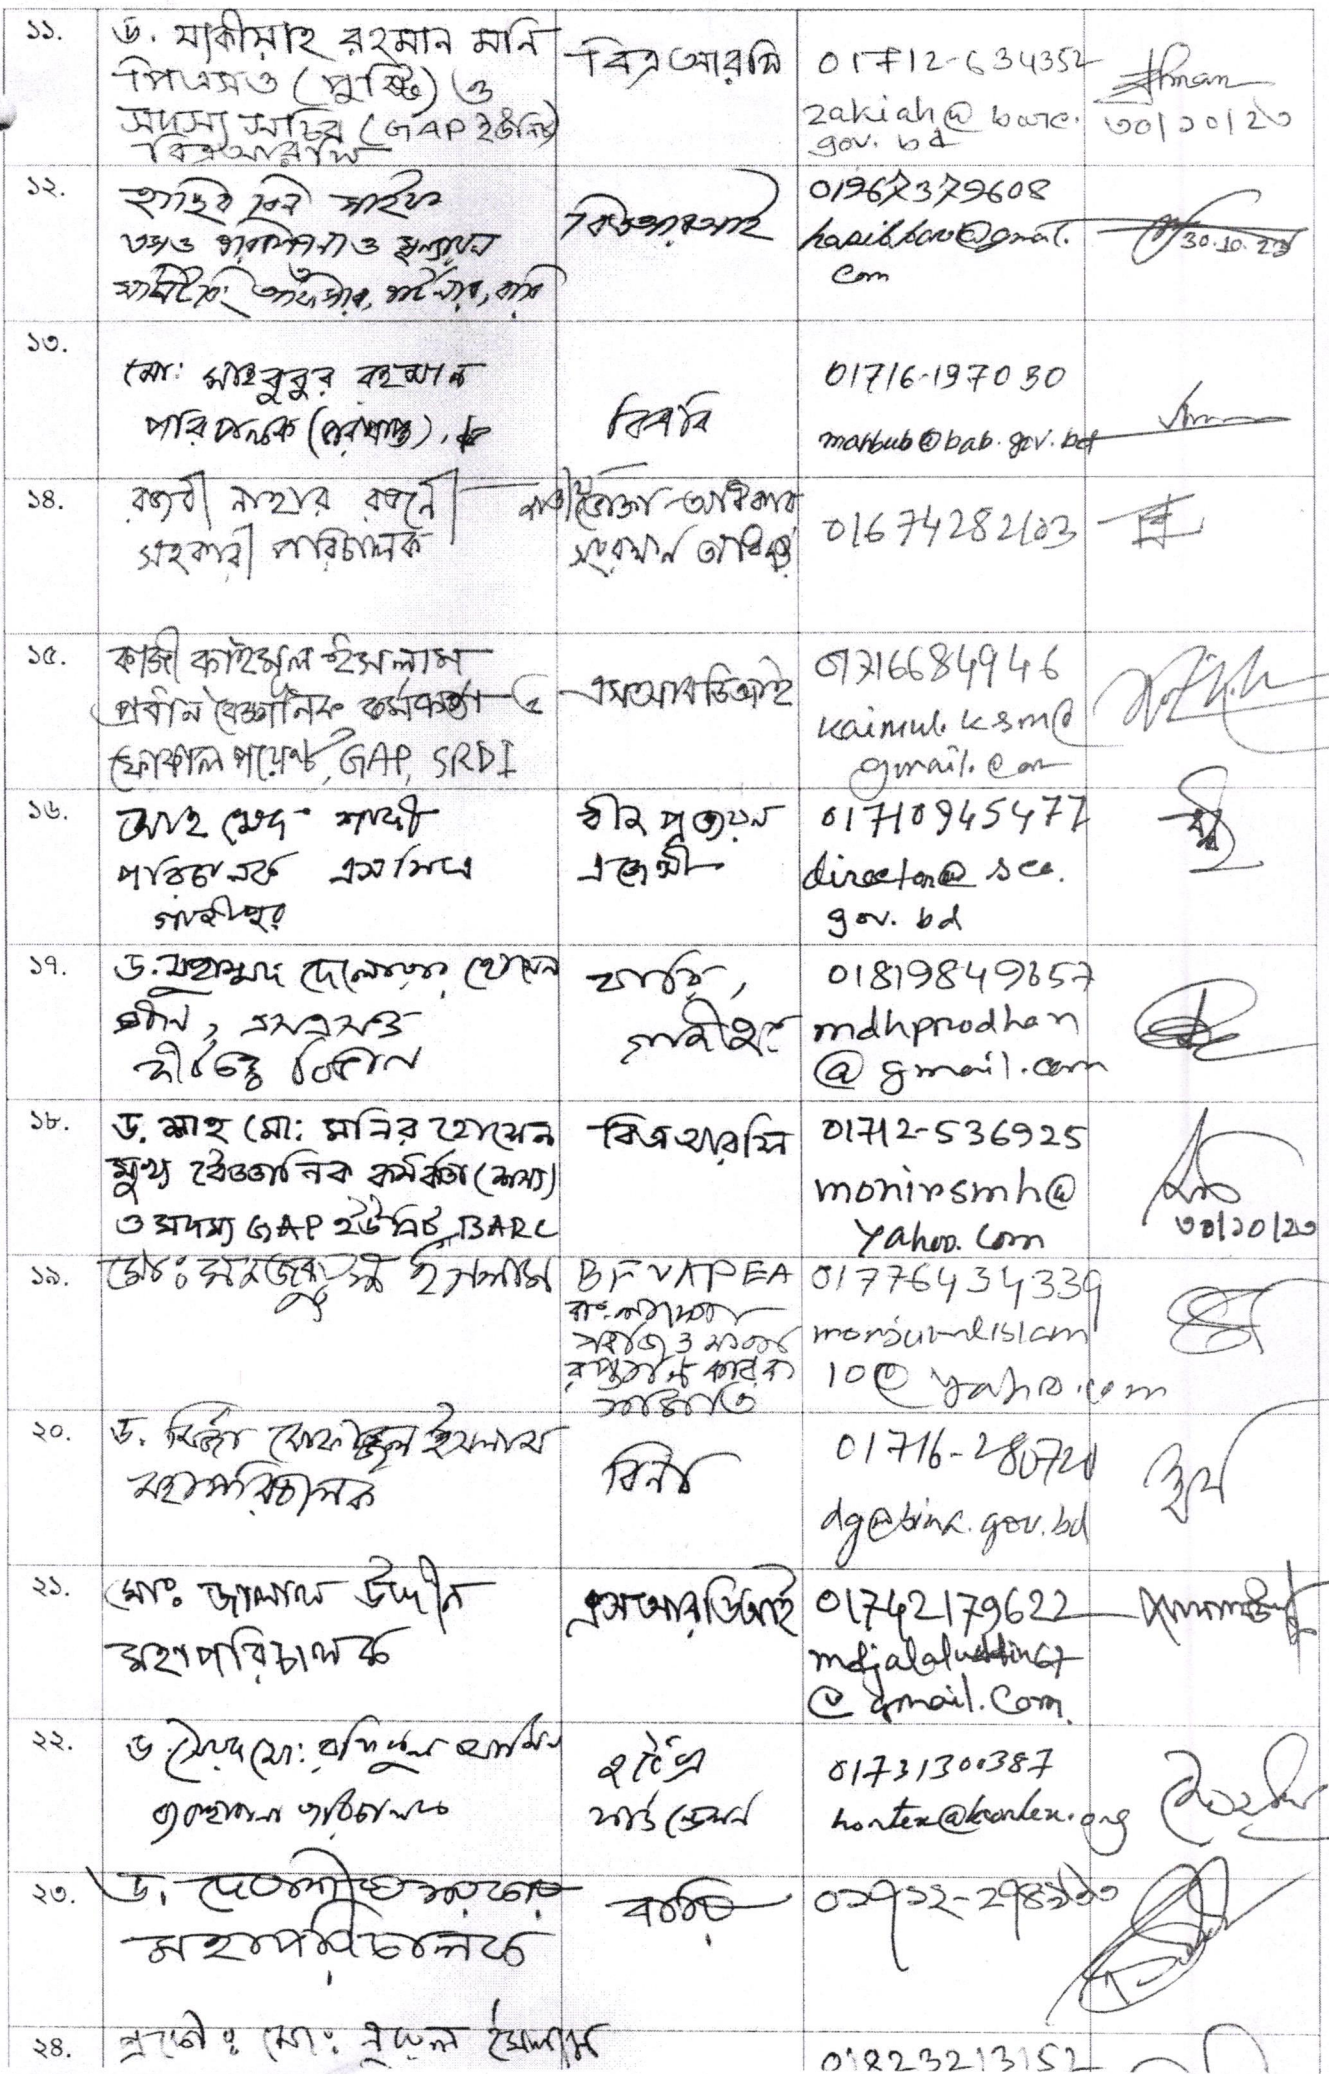 ১১.
ড. যাকীয়াহ রহমান মনি
পিএসও (পুষ্টি) ও
সদস্য সচিব (GAP ইউনিট)
বিএআরসি
বিএআরসি
01712-634352
zakiah@barc.
gov.bd
৩০/১০/২৩
১২.
হাসিব বিন সাইফ
বিএআরআই
01967379608
hasib.bau@gmail.
com
30.10.23
১৩.
মো: মাহবুবুর রহমান
পরিচালক
বিএবি
01716-197030
mahbub@bab.gov.bd
১৪.
রজবী নাহার রজনী
সহকারী পরিচালক
জাতীয় ভোক্তা-অধিকার
সংরক্ষণ অধিদপ্তর
01674282103
১৫.
কাজী কাইমুল ইসলাম
প্রধান বৈজ্ঞানিক কর্মকর্তা ও
ফোকাল পয়েন্ট, GAP, SRDI
এসআরডিআই
01716684946
kaimul.ksm@
gmail.com
১৬.
আহমেদ শাফী
পরিচালক এসসিএ
গাজীপুর
বীজ প্রত্যয়ন
এজেন্সী
01710945477
director@sca.
gov.bd
১৭.
ড. মুহাম্মদ দেলোয়ার হোসেন
প্রধান, এসএসও
কীটতত্ত্ব বিভাগ
বারি,
গাজীপুর
01819849657
mdhprodhan
@gmail.com
১৮.
ড. শাহ মো: মনির হোসেন
মুখ্য বৈজ্ঞানিক কর্মকর্তা (শস্য)
ও সদস্য GAP ইউনিট, BARC
বিএআরসি
01712-536925
monirsmh@
yahoo.com
৩০/১০/২৩
১৯.
মোঃ মনজুরুল ইসলাম
BFVAPEA
সবজি ও
সমিতি
01776434339
monjurulislam
10@yahoo.com
২০.
ড. মির্জা মোফাজ্জল ইসলাম
মহাপরিচালক
বিনা
01716-280720
dg@bina.gov.bd
২১.
মোঃ জালাল উদ্দীন
মহাপরিচালক
এসআরডিআই
01742179622
mdjalaluddin67
@gmail.com
২২.
ড. সৈয়দ মো: রফিকুল আমিন
ব্যবস্থাপনা পরিচালক
হর্টেক্স
ফাউন্ডেশন
01731300387
hortex@hortex.org
২৩.
ড. দেবাশীষ সরকার
মহাপরিচালক
বারি
২৪.
মো: ইসলাম
01823213152